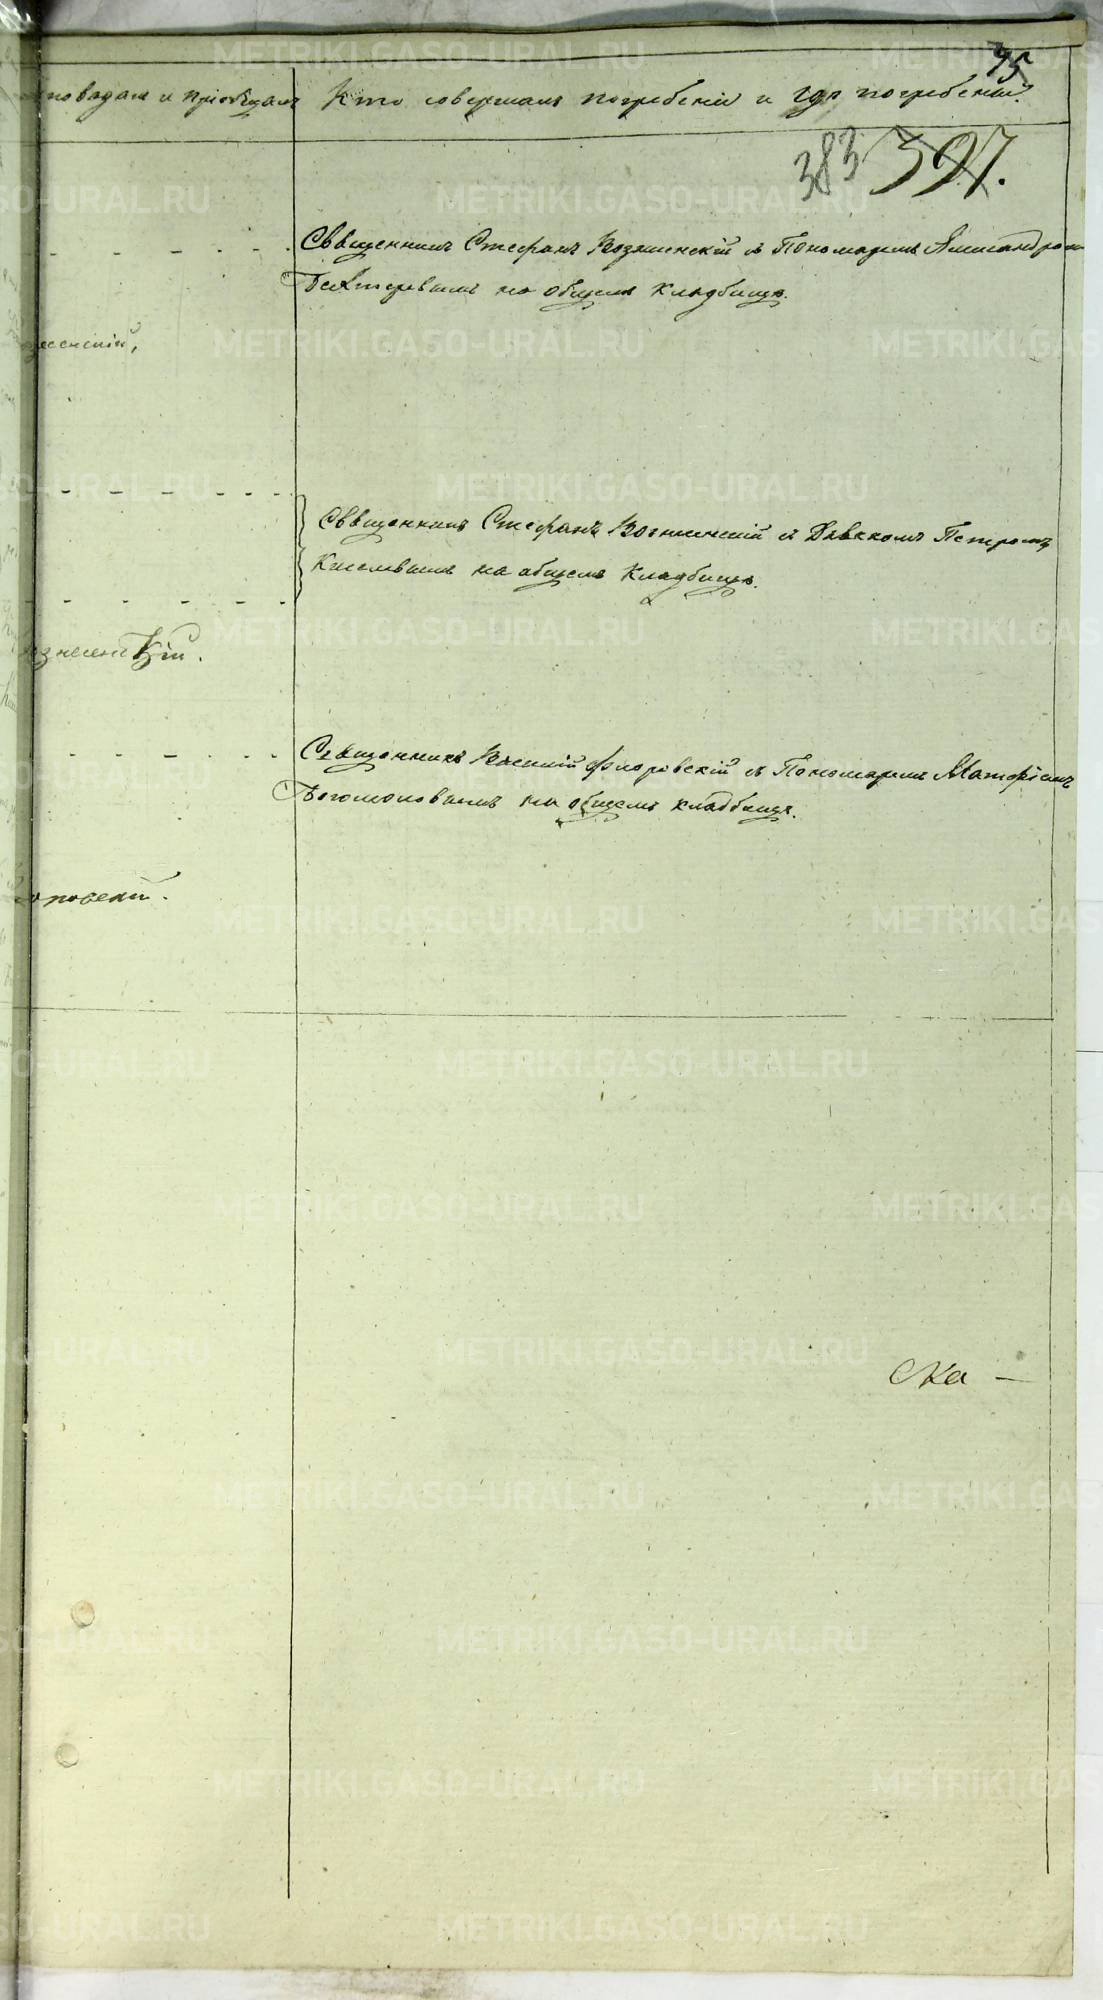 75
повѣдалъ и пріобщалъ
Кто совершалъ погребеніе и гдѣ погребены.
383 397.
Священникъ Стефанъ Вознесенскій съ Пономаремъ Александромъ
Бехтеревымъ на общемъ кладбищѣ.
несенскій,
Священникъ Стефанъ Вознесенскій съ Дьячкомъ Петромъ
Киселевымъ на общемъ Кладбищѣ.
знесенскій.
Священникъ Василій Флоровскій съ Пономаремъ Матфіемъ
Богомоловымъ на общемъ кладбищѣ.
ровскій.
Ска —
METRIKI.GASO-URAL.RU